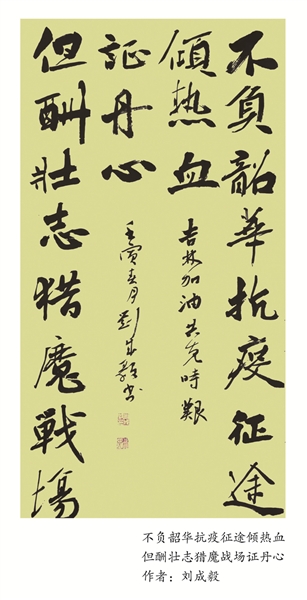 不負韶華抗疫征途
傾热血
吉林加油共克時艱
但酬壮志猎魔戰場
証丹心
壬寅春月劉成毅书
不负韶华抗疫征途倾热血
但酬壮志猎魔战场证丹心
作者：刘成毅